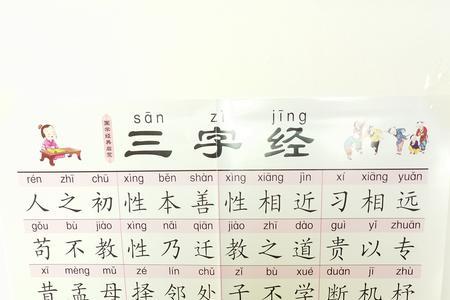 sān zì jīng
三字经
国学经典启蒙
rén zhī chū xìng běn shàn xìng xiāng jìn xí xiāng yuǎn
人之初 性本善 性相近 习相远
gǒu bù jiào xìng nǎi qiān jiào zhī dào guì yǐ zhuān
苟不教 性乃迁 教之道 贵以专
xī mèng mǔ zé lín chǔ zǐ bù xué duàn jī zhù
昔孟母 择邻处 子不学 断机杼